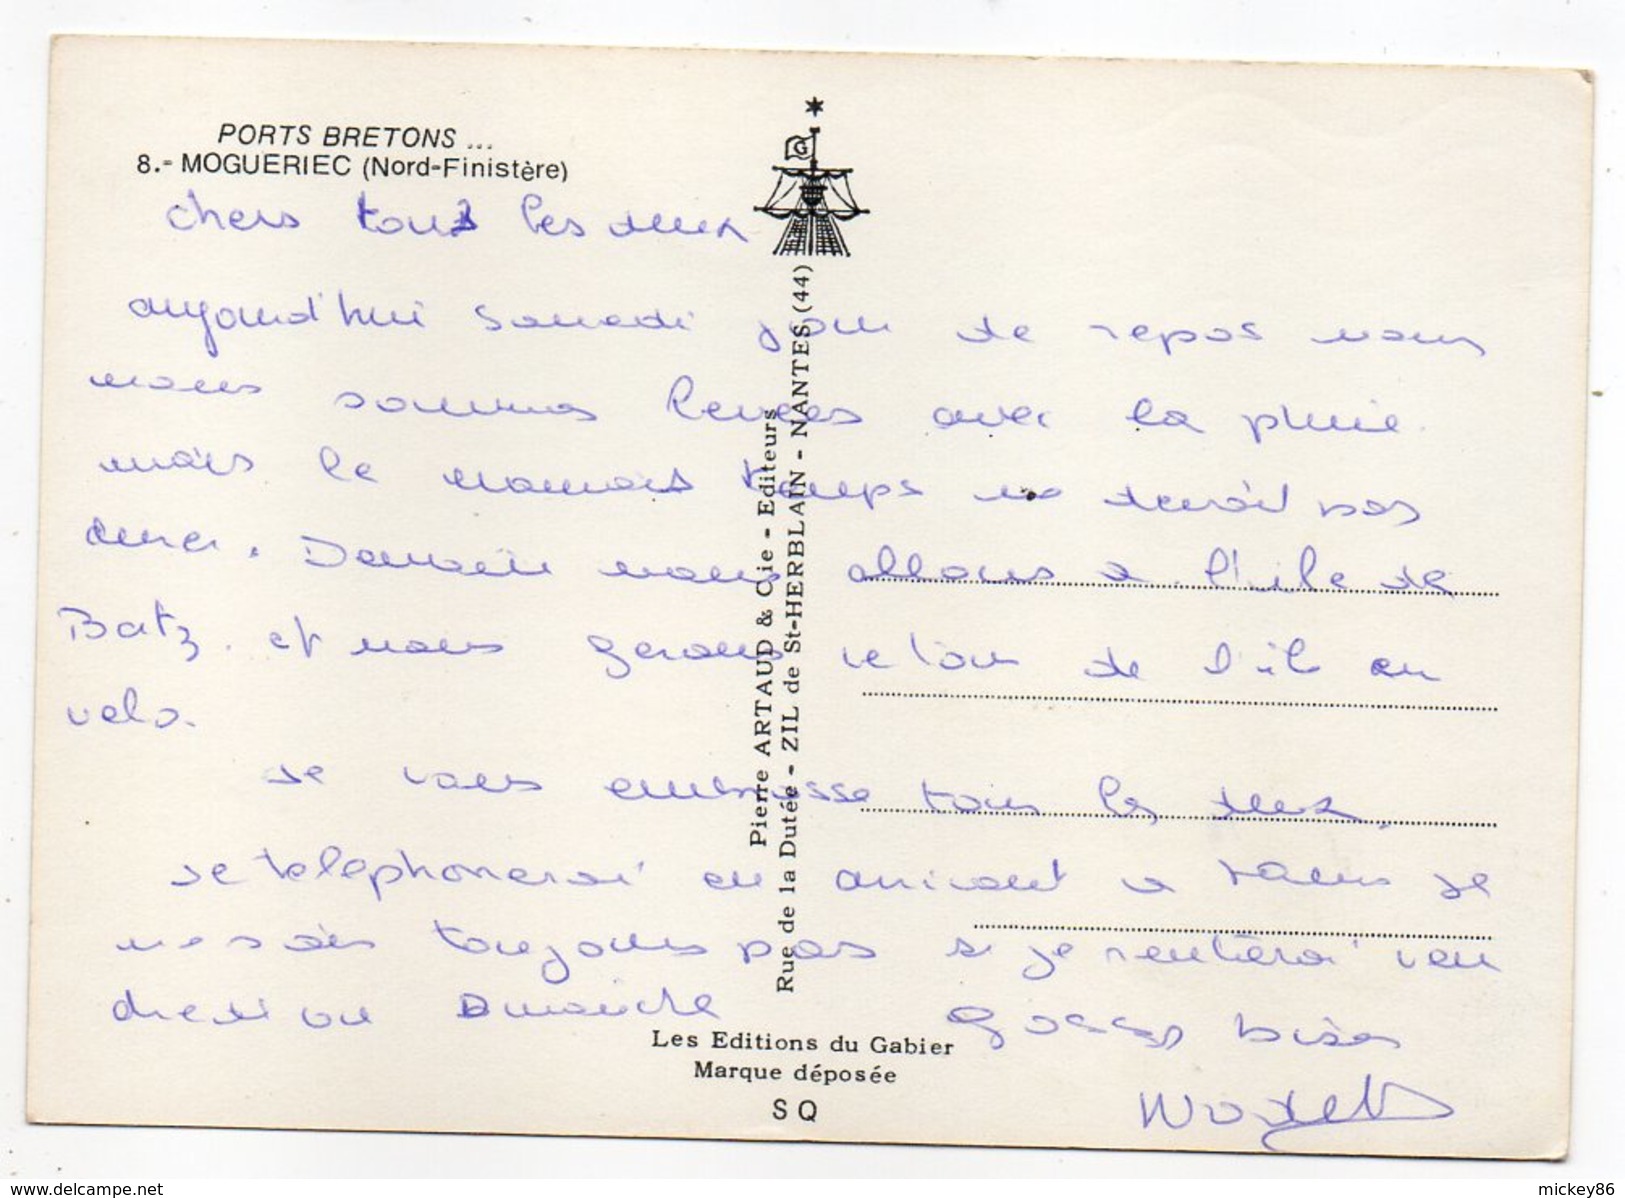 PORTS BRETONS ...
8.- MOGUERIEC (Nord-Finistère)
chers tous les deux
aujourd'hui samedi jour de repos nous
nous sommes levées avec la pluie
mais le mauvais temps ne devrait pas
durer. Demain nous allons a l'ile de
Batz. et nous ferons le tour de l'ile en
velo.
Je vous embrasse tous les deux.
Je telephonerai en arrivant a Je
ne sais toujours pas si je rentrerai ven
dredi ou Dimanche Grosses bises
Pierre ARTAUD & Cie - Editeurs
Rue de la Dutée - ZIL de St-HERBLAIN - NANTES (44)
G
Les Editions du Gabier
Marque déposée
SQ
delcampe.net
mickey86